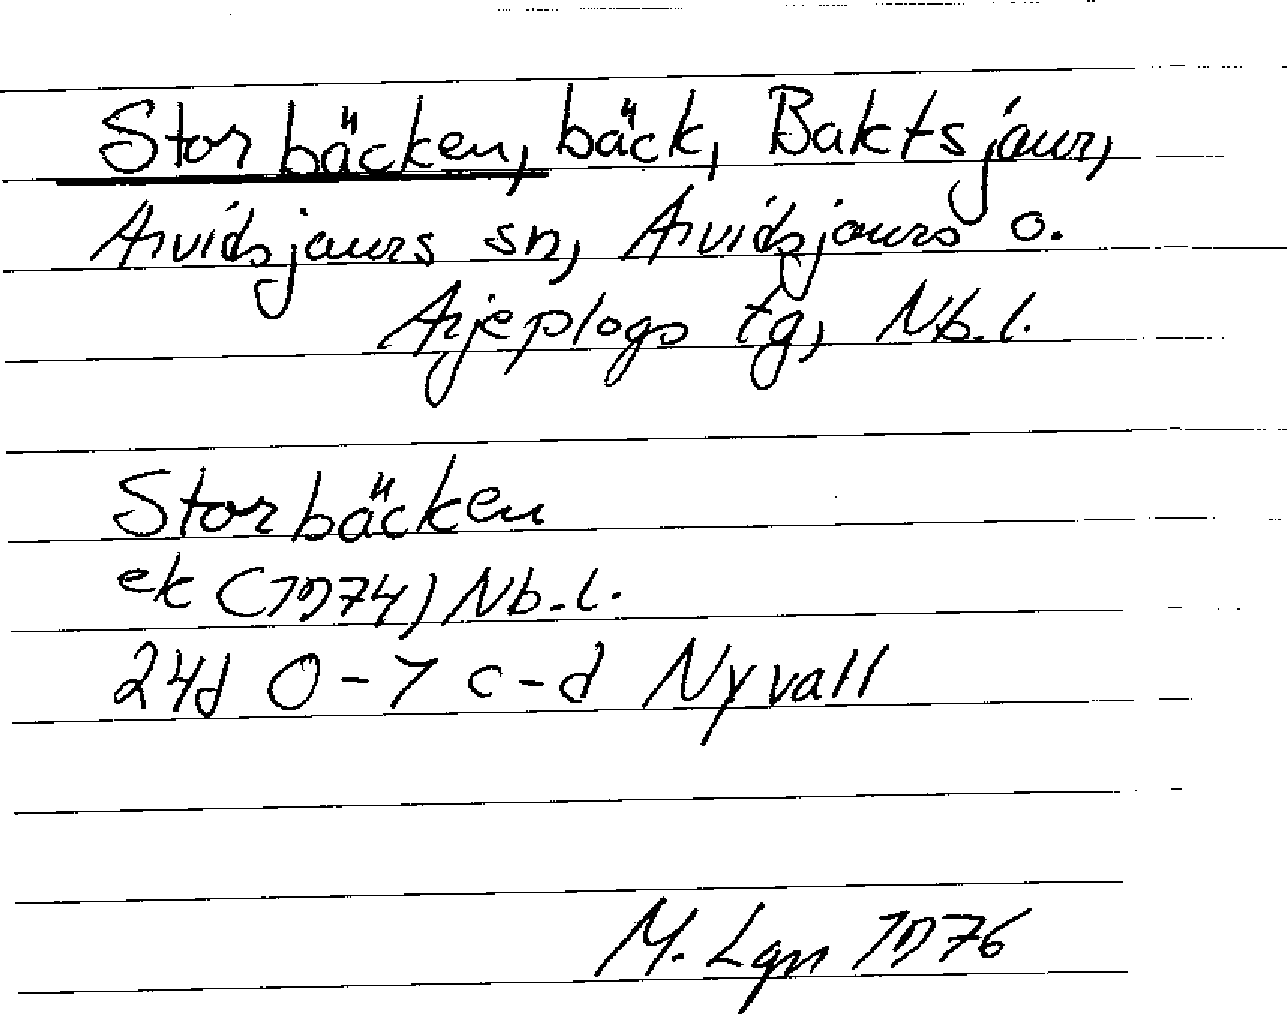 Storbäcken, bäck, Baktsjaur,
Arvidsjaurs sn, Arvidsjaurs o.
Arjeplogs tg, Nb.l.
Storbäcken
ek (1974) Nb.l.
24d 0-1 c-d Nyvall
M. Lgn 1976